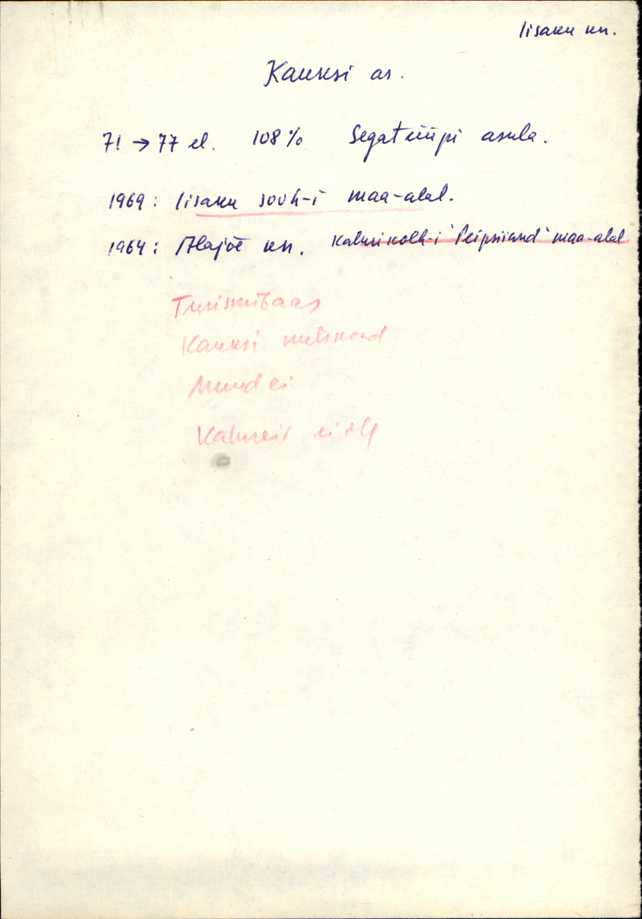 Iisaku kn.
Kauksi as.
71 → 77 el. 108% Segatüüpi asula.
1969: Iisaku sovh-i maa-alal.
1964: Alajõe kn. Kalurikolh-i "Peipsirand" maa-alal
Turismibaas
Kauksi metskond
Muud ei
Kalureid ei ole